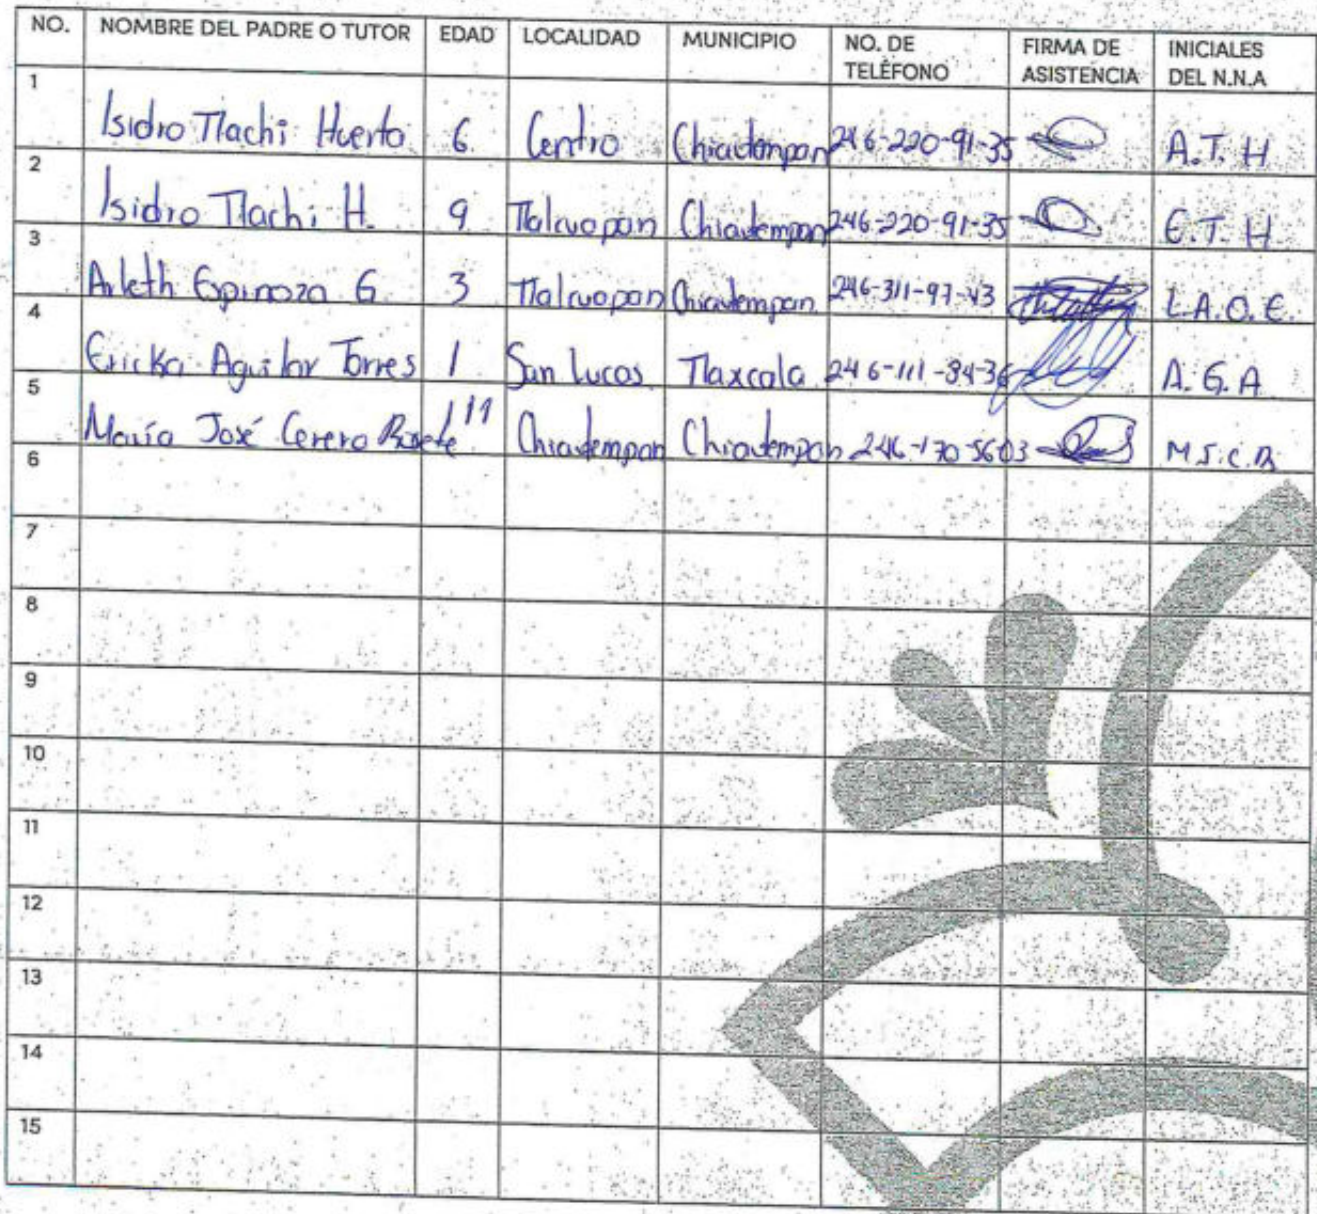 NO. NOMBRE DEL PADRE O TUTOR EDAD LOCALIDAD MUNICIPIO NO. DE TELÉFONO FIRMA DE ASISTENCIA INICIALES DEL N.N.A
1 Isidro Tlachi Huerta 6 Centro Chiautempan 246-220-91-35 A.T.H
2 Isidro Tlachi H. 9 Tlalcuapan Chiautempan 246-220-91-35 E.T.H
3 Arleth Espinoza G 3 Tlalcuapan Chiautempan 246-311-97-43 L.A.O.E.
4 Ericka Aguilar Torres 1 San Lucas Tlaxcala 246-111-84-36 A.G.A
5 María José Cerero 11 Chiautempan Chiautempan 246-170-5603
6
7
8
9
10
11
12
13
14
15